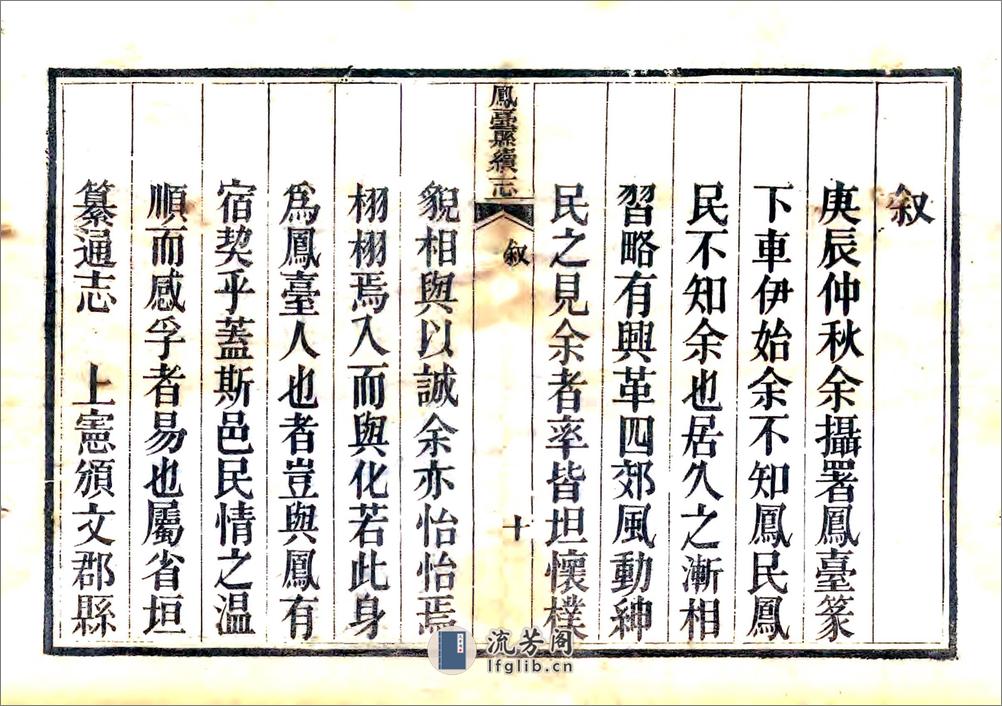 叙
庚辰仲秋余攝署鳳臺篆
下車伊始余不知鳳民鳳
民不知余也居久之漸相
習略有興革四郊風動紳
民之見余者率皆坦懷樸
鳳臺縣續志
叙
十
貌相與以誠余亦怡怡焉
栩栩焉入而與化若此身
爲鳳臺人也者豈與鳳有
宿契乎蓋斯邑民情之温
順而感孚者易也屬省垣
纂通志　上憲頒文郡縣
流芳阁
lfglib.cn